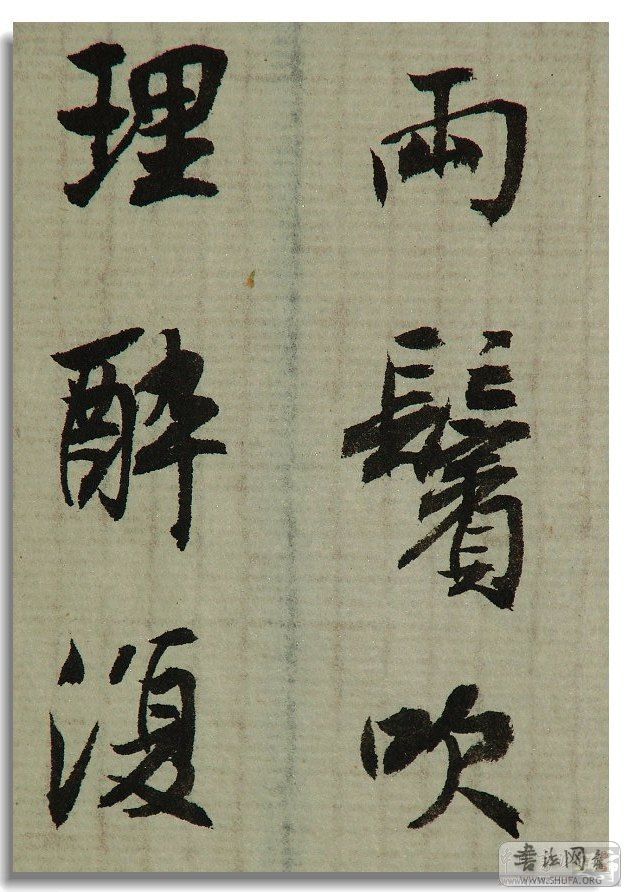 兩鬢吹
理醉復
書法网
WWW.SHUFA.ORG